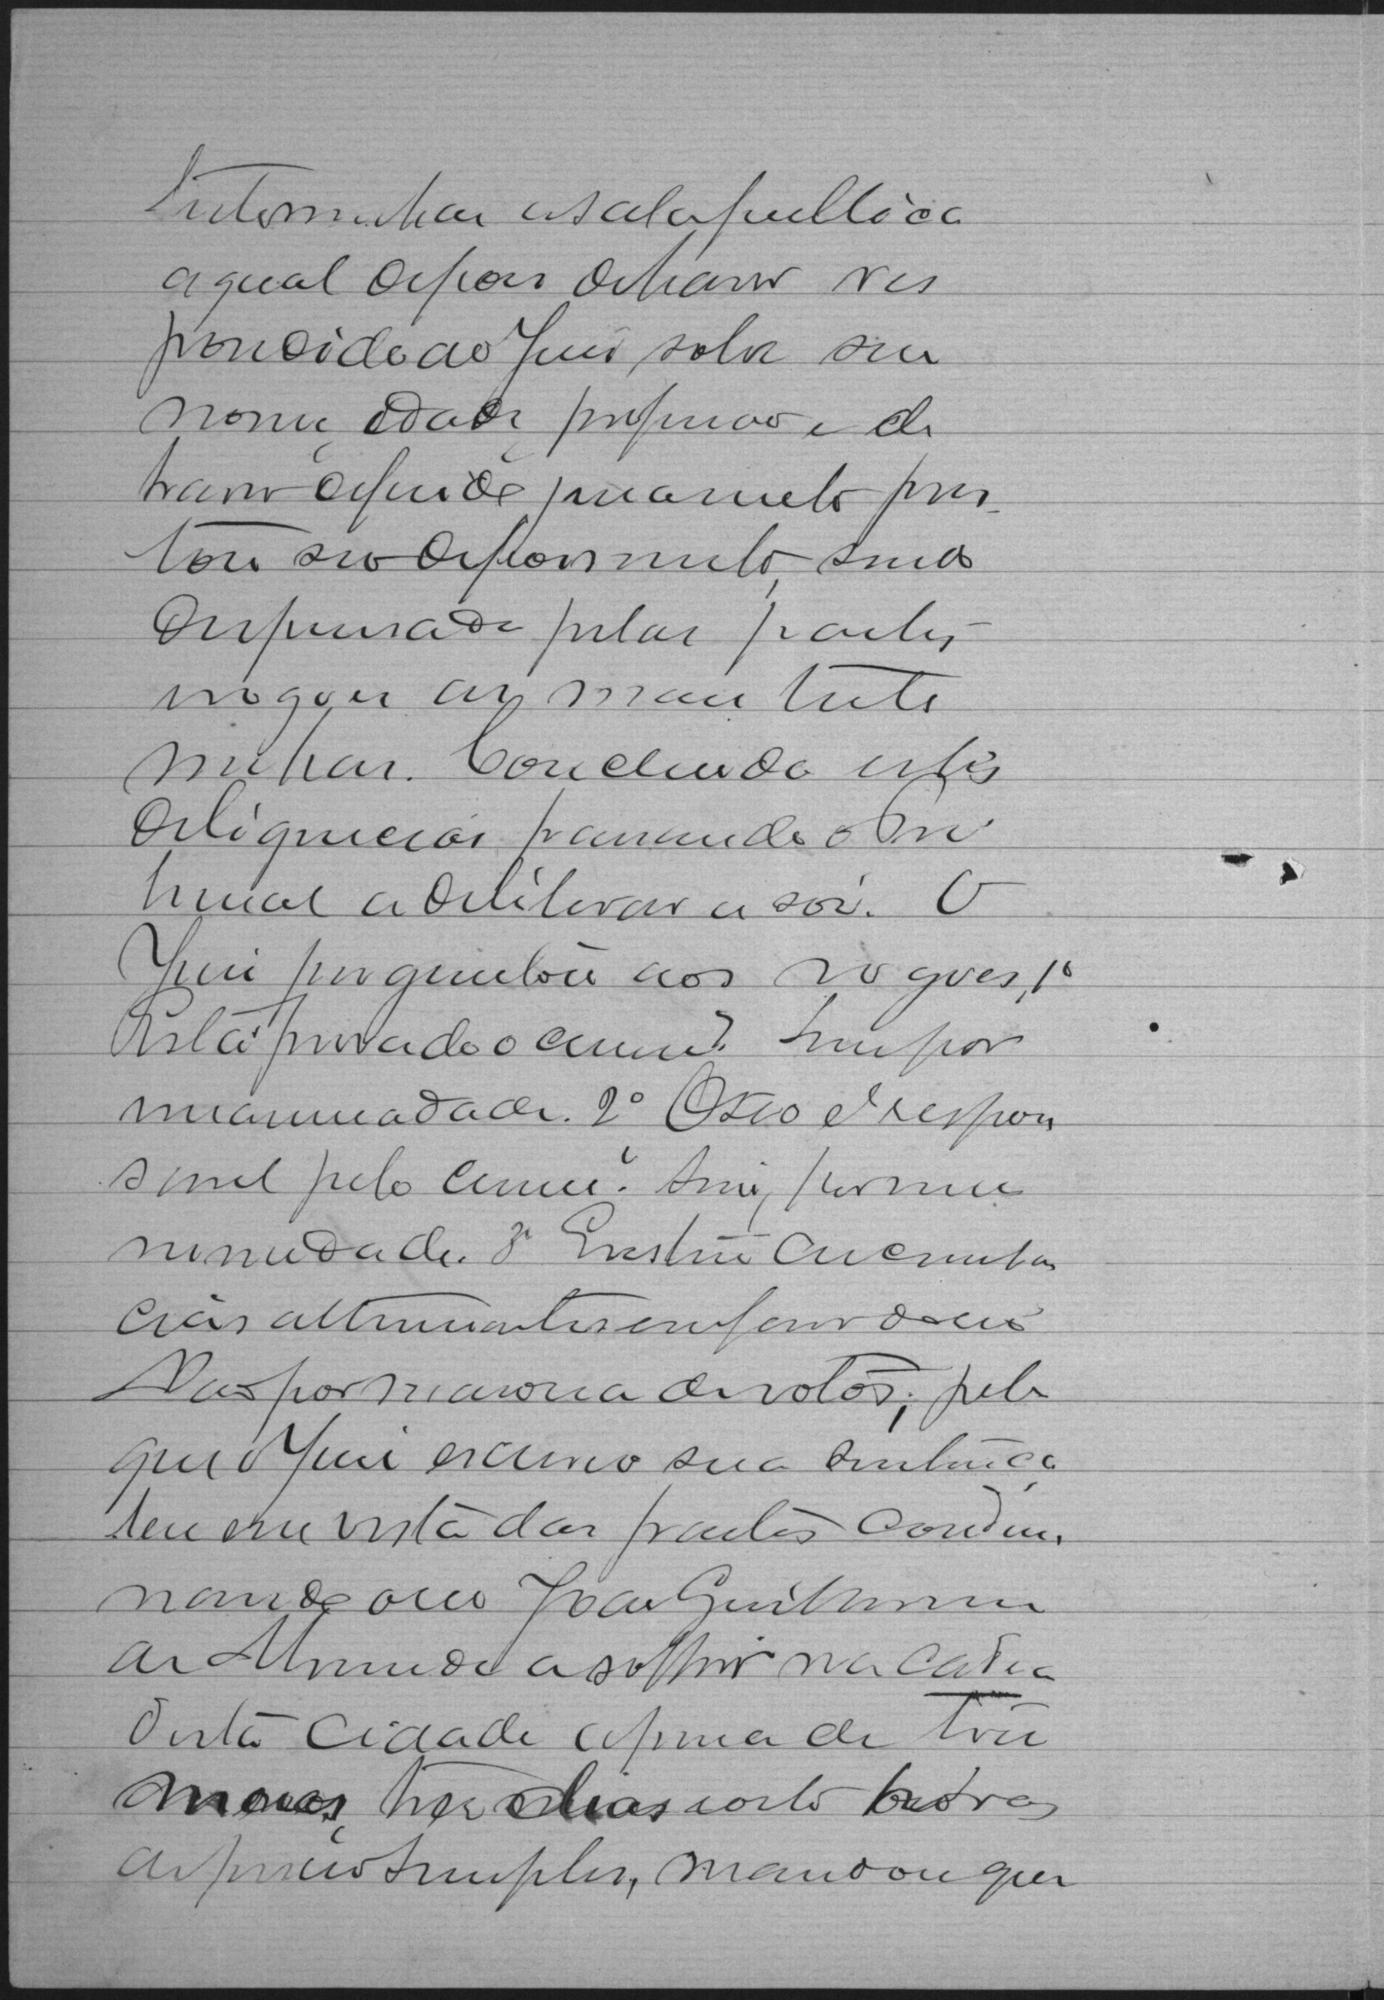 testemunha a sala publica
a qual depois de haver res
pondido ao Juiz sobre seu
nome, edade, profissão e de
haver deferido juramento pres-
tou seo depoimento, sendo
dispensada pelas partes
a inquirição das mais teste
munhas. Concluida estas
deligencias passando o Tri
bunal a deliberar a sós. O
Juiz perguntou aos vogaes, 1º
Está provado o crime? Sim por
unanimidade. 2º O reo é respon
savel pelo crime? Sim, por una
nimidade. 3º Existem circunstan
cias attenuantes em favor do reo
Não por maioria de votos; pelo
que o Juiz escreveo sua sentença,
leu em vista das partes condem-
nando o reo João Guilherme
de Almeida a soffrer na cadea
desta cidade a pena de tres
mezes, tres dias e oito horas
de prisão simples, mandou que